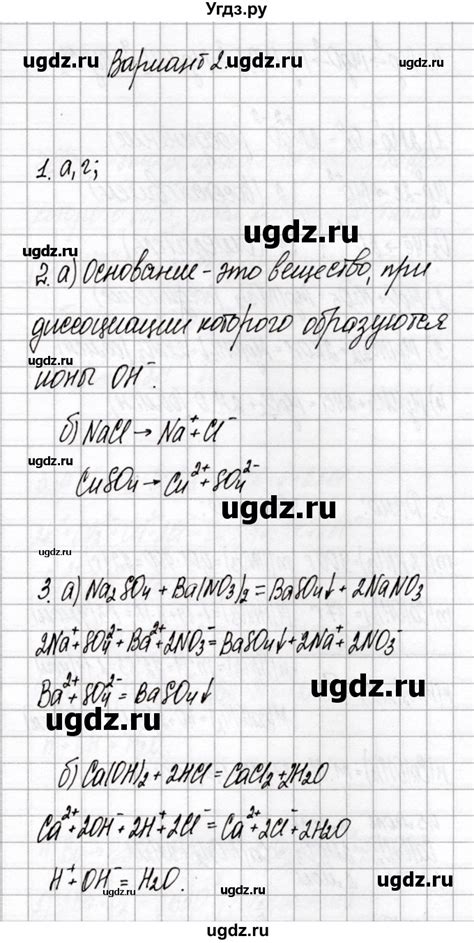 Угдз.ру
ugdz.ru Вариант 2. ugdz.ru ugdz.ru
1. а, г;
ugdz.ru
ugdz.ru
2. а) Основание - это вещество, при
диссоциации которого образуются
ugdz.ru
ионы OH⁻.
б) NaCl → Na⁺ + Cl⁻
ugdz.ru
CuSO₄ → Cu²⁺ + SO₄²⁻
ugdz.ru
3. а) Na₂SO₄ + Ba(NO₃)₂ = BaSO₄↓ + 2NaNO₃
2Na⁺ + SO₄²⁻ + Ba²⁺ + 2NO₃⁻ = BaSO₄↓ + 2Na⁺ + 2NO₃⁻
Ba²⁺ + SO₄²⁻ = BaSO₄↓
ugdz.ru
ugdz.ru
б) Ca(OH)₂ + 2HCl = CaCl₂ + 2H₂O
Ca²⁺ + 2OH⁻ + 2H⁺ + 2Cl⁻ = Ca²⁺ + 2Cl⁻ + 2H₂O
H⁺ + OH⁻ = H₂O.
ugdz.ru ugdz.ru ugdz.ru
ugdz.ru